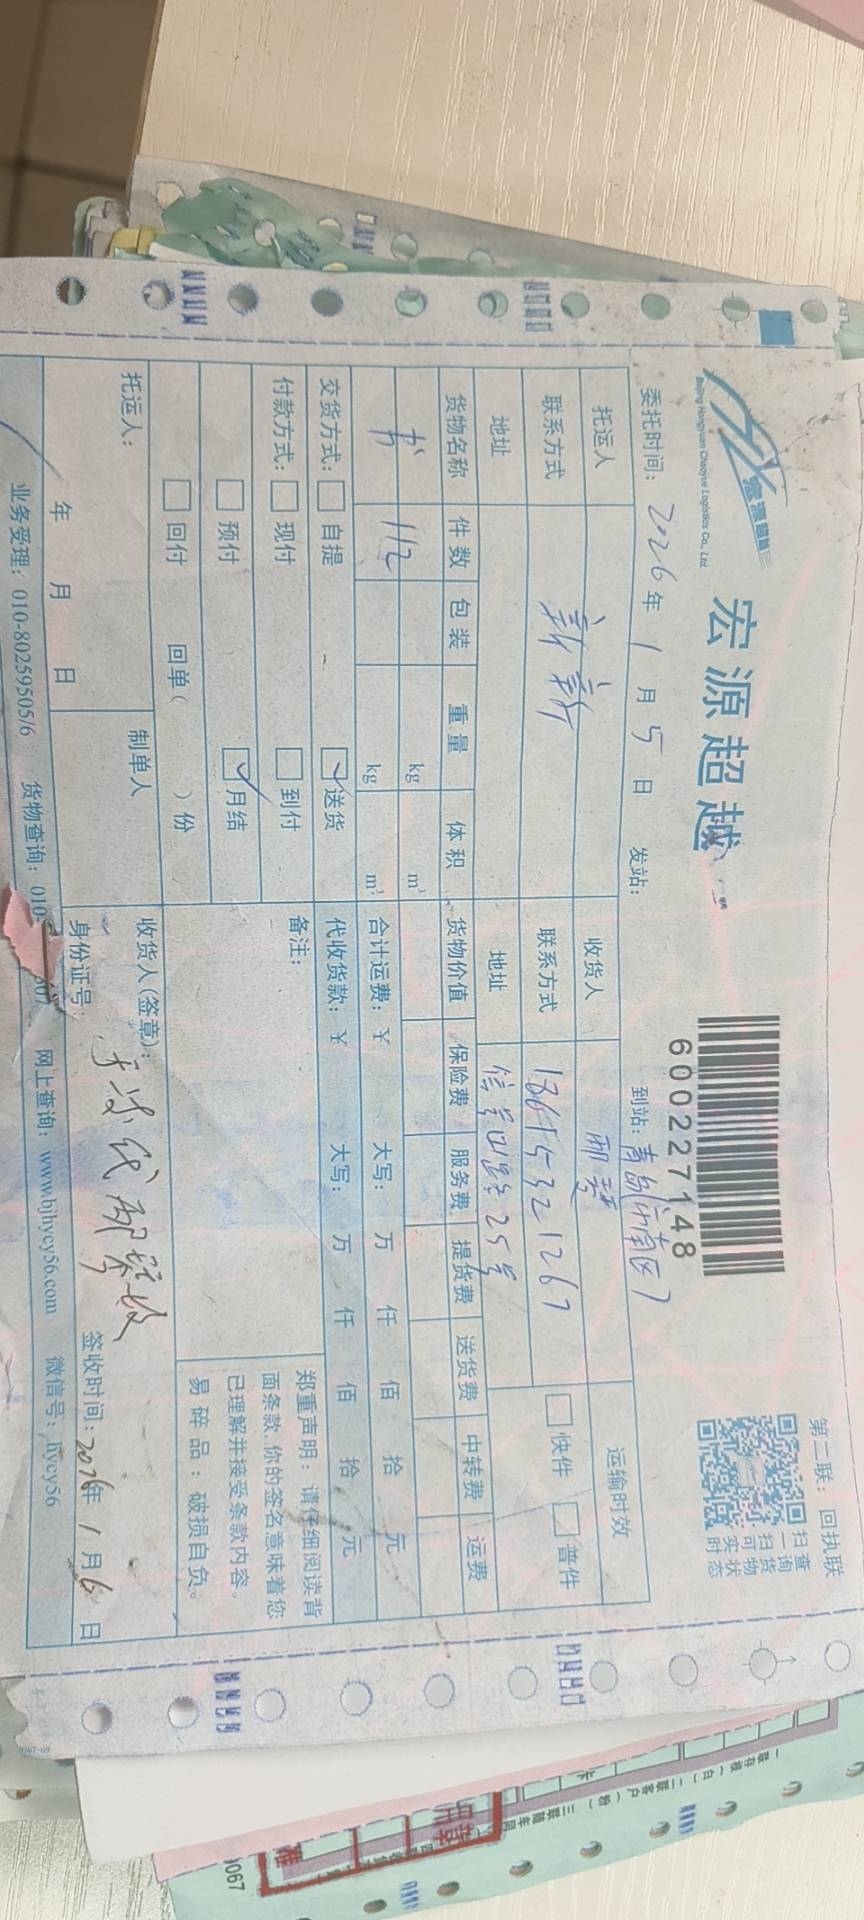 宏源超越
Beijing Hongyuan Chaoyue Logistics Co., Ltd.
宏 源 超 越
60022271148
第二联：回执联
扫一扫可实时
查询货物状态
委托时间：2026年1月5日 发站： 到站：青岛市南区
托运人 新新 收货人 邢琴 运输时效
联系方式 联系方式 18615321267 快件 普件
地址 地址 信号山路25号
货物名称 件数 包装 重量 体积 货物价值 保险费 服务费 提货费 送货费 中转费 运费
书 112 kg m³
kg m³ 合计运费：￥ 大写： 万 仟 佰 拾 元
交货方式： 自提 送货 代收货款：￥ 大写： 万 仟 佰 拾 元
付款方式： 现付 到付 备注：
预付 月结
回付 回单（ ）份
郑重声明：请仔细阅读背
面条款，你的签名意味着您
已理解并接受条款内容。
易碎品：破损自负。
托运人： 制单人 收货人(签章)：
年 月 日 身份证号： 签收时间：2026年1月6日
业务受理：010-80259505/6 货物查询：010- 307 网上查询：www.bjhycy56.com 微信号：hycy56
9067